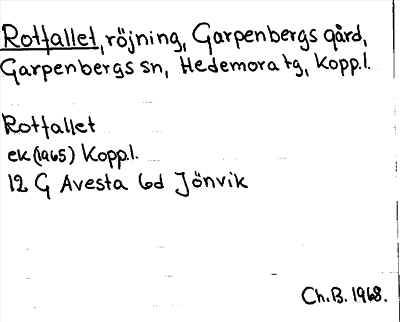 Rotfallet, röjning, Garpenbergs gård,
Garpenbergs sn, Hedemora tg, Kopp.l.
Rotfallet
ek (1965) Kopp.l.
12 G Avesta 6d Jönvik
Ch.B. 1968.